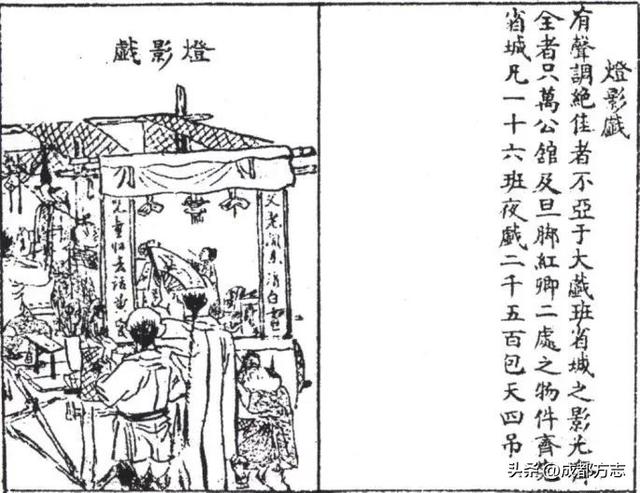 燈影戲
有聲調絶佳者不亞于大戲班省城之影光
全者只萬公舘及旦脚紅卿二處之物件齊
省城凡一十六班夜戲二千五百包天四吊
燈影戲
父老閒來消白晝
兒童歸去話黃昏
头条@成都方志